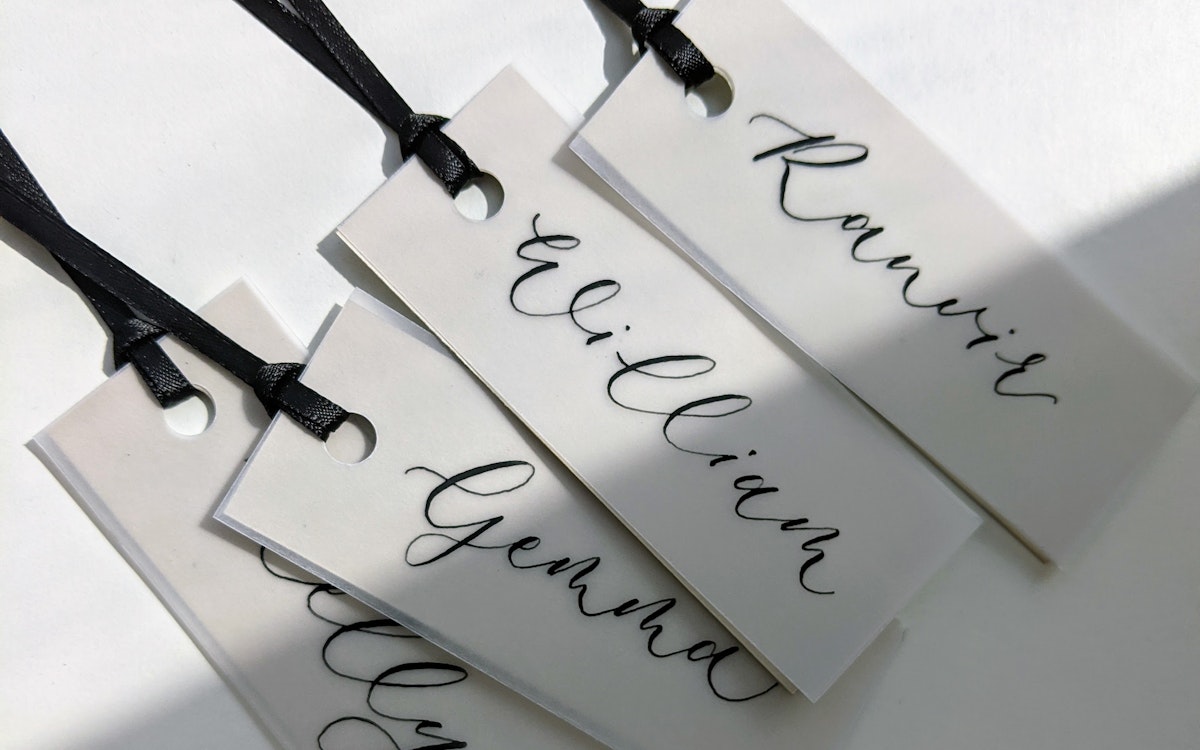 Ranvir
William
Gemma